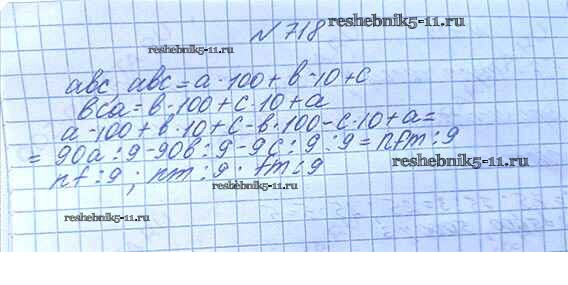 reshebnik5-11.ru
№ 718
reshebnik5-11.ru
авс, авс = а·100 + в·10 + с
вса = в·100 + с·10 + а
а·100 + в·10 + с - в·100 - с·10 + а =
= 90а : 9 - 90в : 9 - 9с : 9 : 9 = nfm : 9
nf : 9 ; nm : 9 ; fm : 9
reshebnik5-11.ru
reshebnik5-11.ru
reshebnik5-11.ru